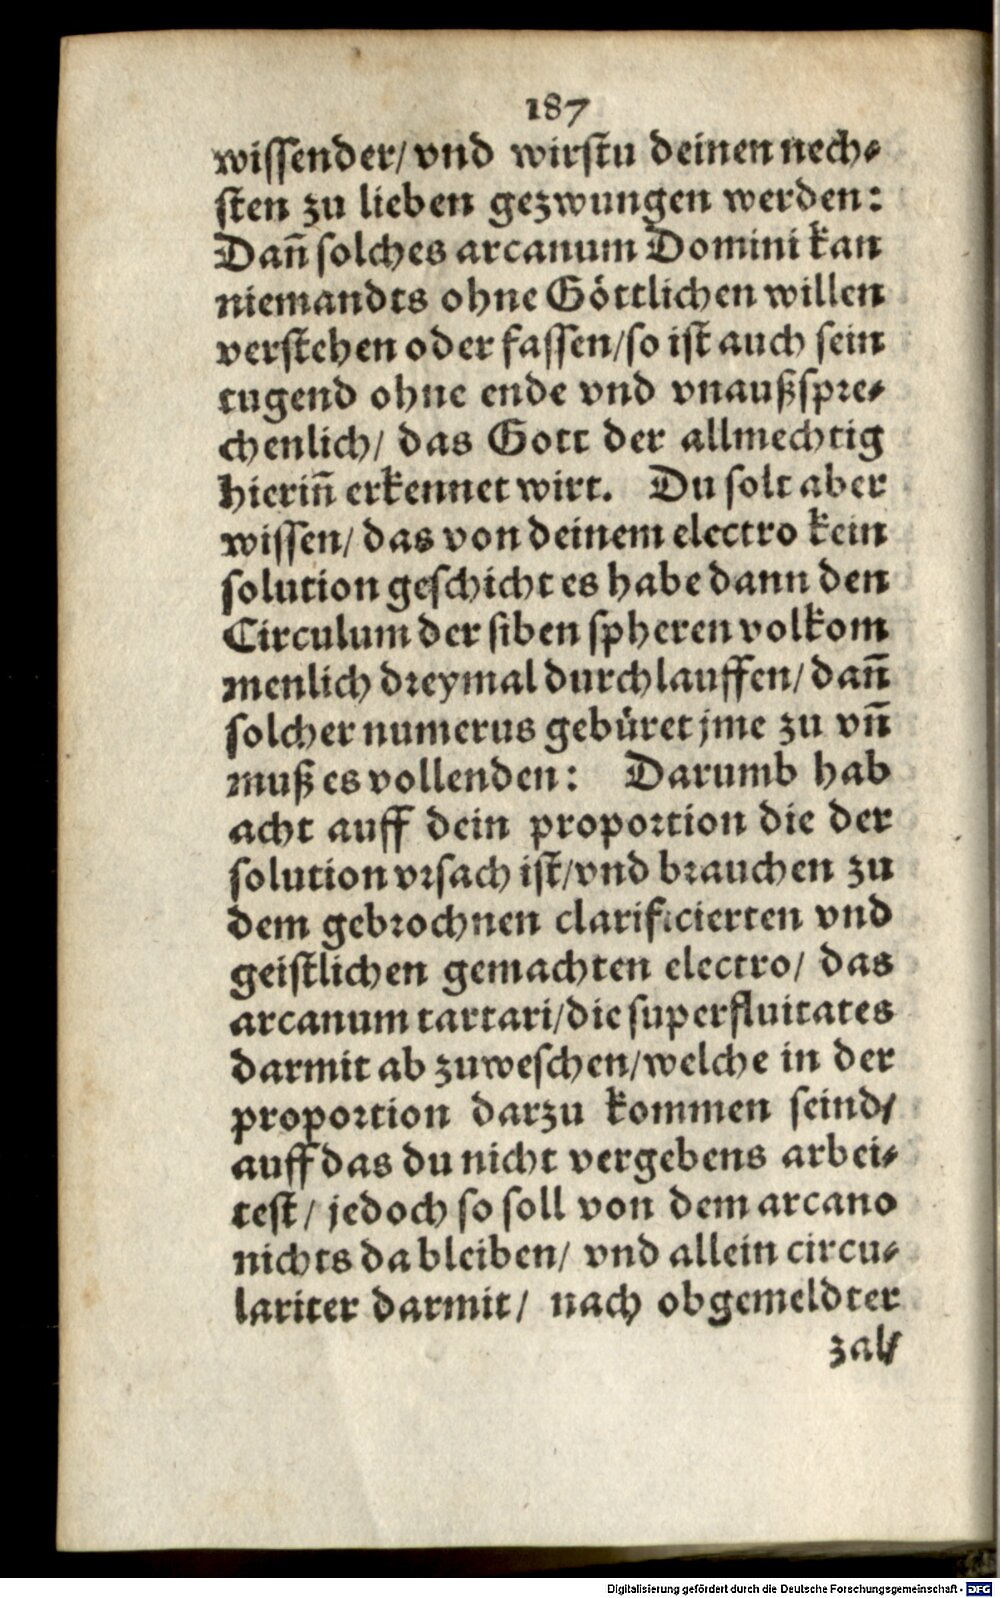 187
wissender/ vnd wirstu deinen nech⸗
sten zu lieben gezwungen werden:
Dan̄ solches arcanum Domini kan
niemandts ohne Göttlichen willen
verstehen oder fassen/ so ist auch sein
tugend ohne ende vnd vnaußspre⸗
chenlich/ das Gott der allmechtig
hierin̄ erkennet wirt. Du solt aber
wissen/ das von deinem electro kein
solution geschicht es habe dann den
Circulum der siben spheren volkom
menlich dreymal durchlauffen/ dan̄
solcher numerus gebüret jme zu vn̄
muß es vollenden: Darumb hab
acht auff dein proportion die der
solution vrsach ist/ vnd brauchen zu
dem gebrochnen clarificierten vnd
geistlichen gemachten electro/ das
arcanum tartari/ die superfluitates
darmit ab zuweschen/ welche in der
proportion darzu kommen seind/
auff das du nicht vergebens arbei⸗
test/ jedoch so soll von dem arcano
nichts da bleiben/ vnd allein circu⸗
lariter darmit/ nach obgemeldter
zal/
Digitalisierung gefördert durch die Deutsche Forschungsgemeinschaft - DFG